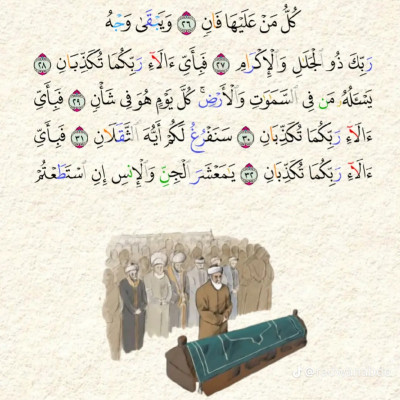 كُلُّ مَنْ عَلَيْهَا فَانٍ ٢٦ وَيَبْقَىٰ وَجْهُ
رَبِّكَ ذُو ٱلْجَلَٰلِ وَٱلْإِكْرَامِ ٢٧ فَبِأَيِّ ءَالَآءِ رَبِّكُمَا تُكَذِّبَانِ ٢٨
يَسْـَٔلُهُۥ مَن فِى ٱلسَّمَٰوَٰتِ وَٱلْأَرْضِ ۚ كُلَّ يَوْمٍ هُوَ فِى شَأْنٍ ٢٩ فَبِأَيِّ
ءَالَآءِ رَبِّكُمَا تُكَذِّبَانِ ٣٠ سَنَفْرُغُ لَكُمْ أَيُّهَ ٱلثَّقَلَانِ ٣١ فَبِأَيِّ
ءَالَآءِ رَبِّكُمَا تُكَذِّبَانِ ٣٢ يَٰمَعْشَرَ ٱلْجِنِّ وَٱلْإِنسِ إِنِ ٱسْتَطَعْتُمْ